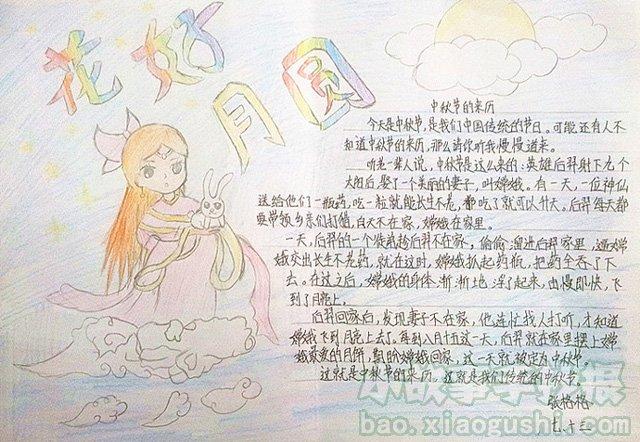 花好月圆
中秋节的来历
今天是中秋节,是我们中国传统的节日。可能还有人不
知道中秋节的来历,那么请你听我慢慢道来。
听老一辈人说,中秋节是这么来的:英雄后羿射下九个
太阳后,娶了一个美丽的妻子,叫嫦娥。有一天,一位神仙
送给他们一瓶药,吃一粒就能长生不老,都吃了就可以升天。后羿每天都
要带领乡亲们打猎,白天不在家,嫦娥在家里。
一天,后羿的一个徒弟趁后羿不在家,偷偷溜进后羿家里,逼嫦
娥交出长生不老药,就在这时,嫦娥抓起药瓶,把药全吞了下
去。在这之后,嫦娥的身体渐渐地浮了起来,由慢即快,飞
到了月亮上。
后羿回家后,发现妻子不在家,他连忙找人打听,才知道
嫦娥飞到月亮上去了。每到八月十五这一天,后羿就在家里摆上嫦
娥最爱的月饼,期盼嫦娥回家,这一天就被定为中秋节。
这就是中秋节的来历,这就是我们传统的中秋节。
张格格
七.十三
小故事手抄报
bao.xiaogushi.com